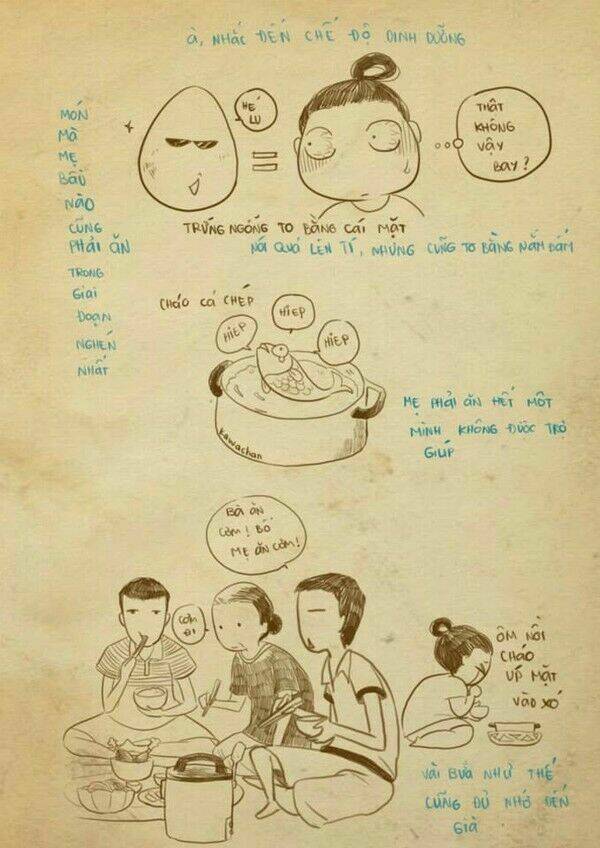 À, NHẮC ĐẾN CHẾ ĐỘ DINH DƯỠNG
MÓN
MÀ
MẸ
BẦU
NÀO
CŨNG
PHẢI ĂN
TRONG
GIAI
ĐOẠN
NGHÉN
NHẤT
HÉ
LU
THẬT
KHÔNG
VẬY
BAY?
TRỨNG NGỖNG TO BẰNG CÁI MẶT
NÓI QUÁ LÊN TÍ, NHƯNG CŨNG TO BẰNG NẮM ĐẤM
CHÁO CÁ CHÉP
HIEP
HIEP
HIEP
kawachan
MẸ PHẢI ĂN HẾT MỘT
MÌNH KHÔNG ĐƯỢC TRỢ
GIÚP
BÀ ĂN
CƠM! BỐ
MẸ ĂN CƠM!
CƠM
ĐI
ÔM NỒI
CHÁO
ÚP MẶT
VÀO XÓ
VÀI BỮA NHƯ THẾ
CŨNG ĐỦ NHỚ ĐẾN
GIÀ